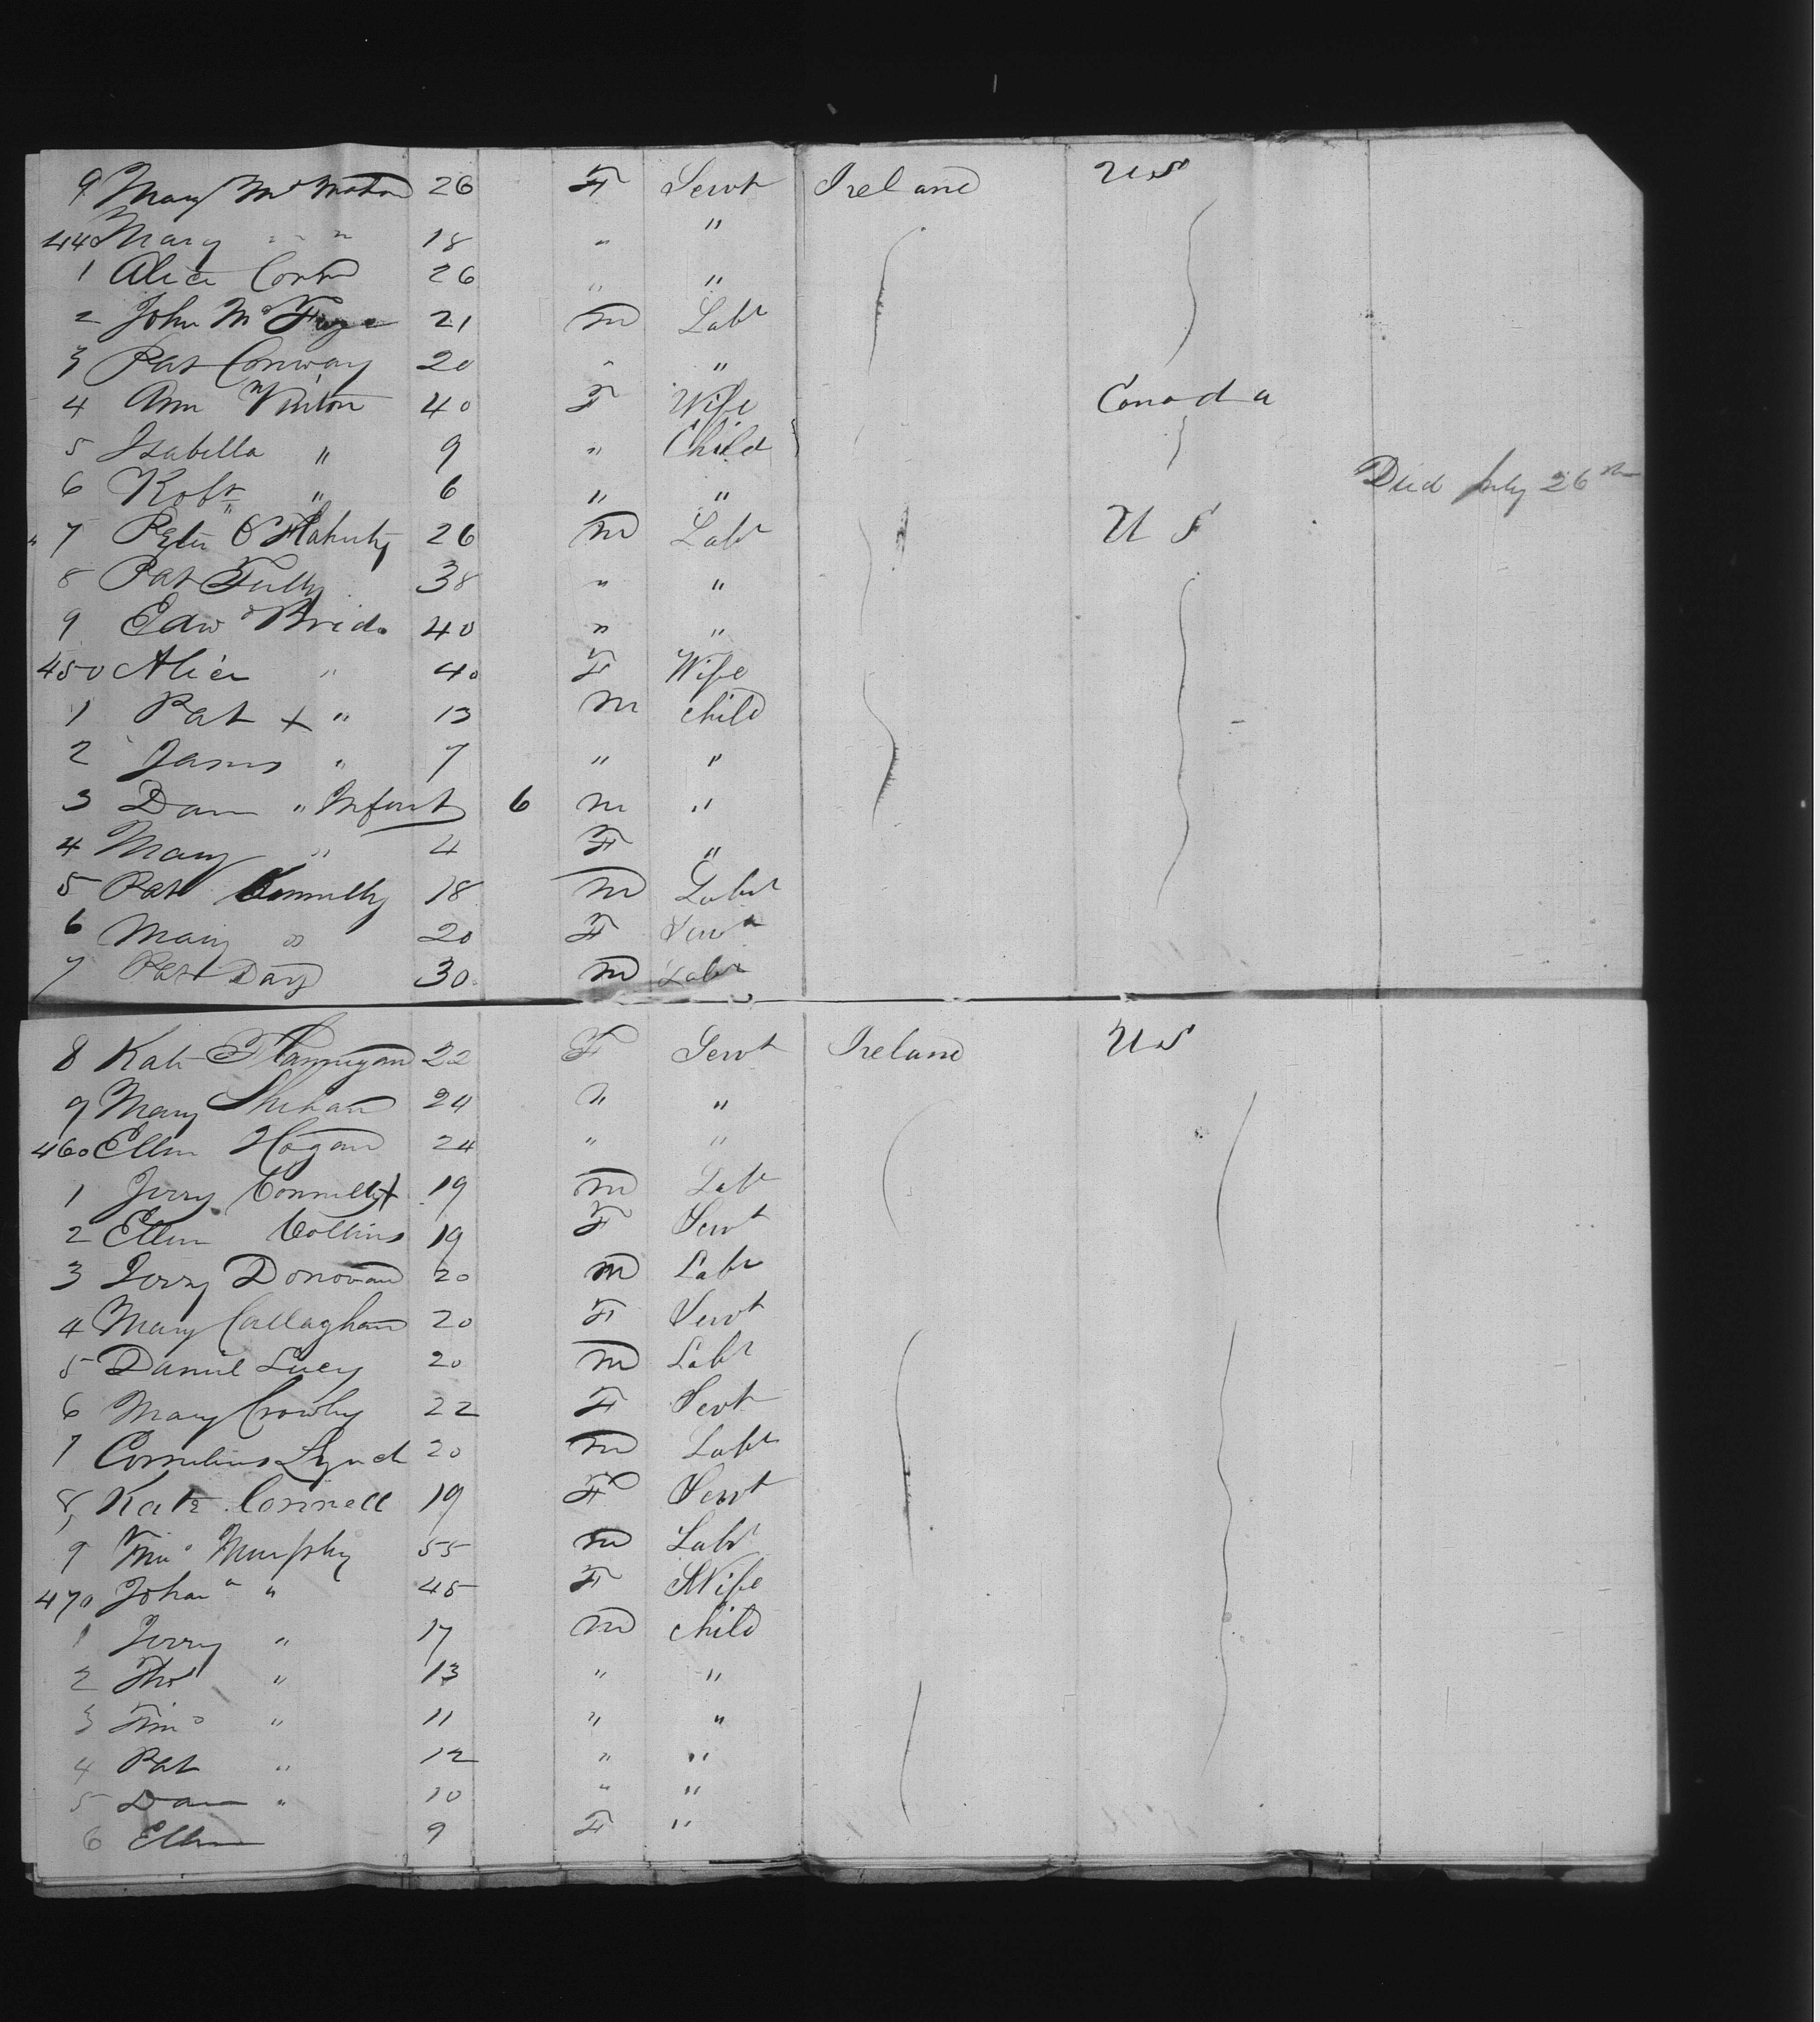 9 Mary McMahon 26 F Servt Ireland US
440 Mary " " 18 " "
1 Alice 26 " "
2 John 21 M Labr
3 Pat Conway 20 " "
4 Ann Vinton 40 F Wife Canada
5 Isabella " 9 " Child
6 Robt " 6 " " Died July 26th
7 Peter O'Flaherty 26 M Labr US
8 Pat Tully 38 " "
9 Edwd 40 " "
450 Alice " 40 F Wife
1 Pat X " 13 M child
2 James " 7 " "
3 Dan " Infant 6 M "
4 Mary " 4 F "
5 Pat Connelly 18 M Labr
6 Mary " 20 F Servt
7 Pat Day 30 M Labr
8 Kate Flannigan 22 F Servt Ireland US
9 Mary Shehan 24 " "
460 Ellen Hogan 24 " "
1 Jerry Connelly X 19 M Labr
2 Ellen Collins 19 F Servt
3 Jerry Donovan 20 M Labr
4 Mary Callaghan 20 F Servt
5 Daniel Lucy 20 M Labr
6 Mary Crowley 22 F Servt
7 Cornelius Lynch 20 M Labr
8 Kate Connell 19 F Servt
9 Timo Murphy 55 M Labr
470 Johana " 45 F Wife
1 Jerry " 17 M child
2 Thos " 13 " "
3 Timo " 11 " "
4 Pat " 12 " "
5 Dan " 10 " "
6 Ellen 9 F "